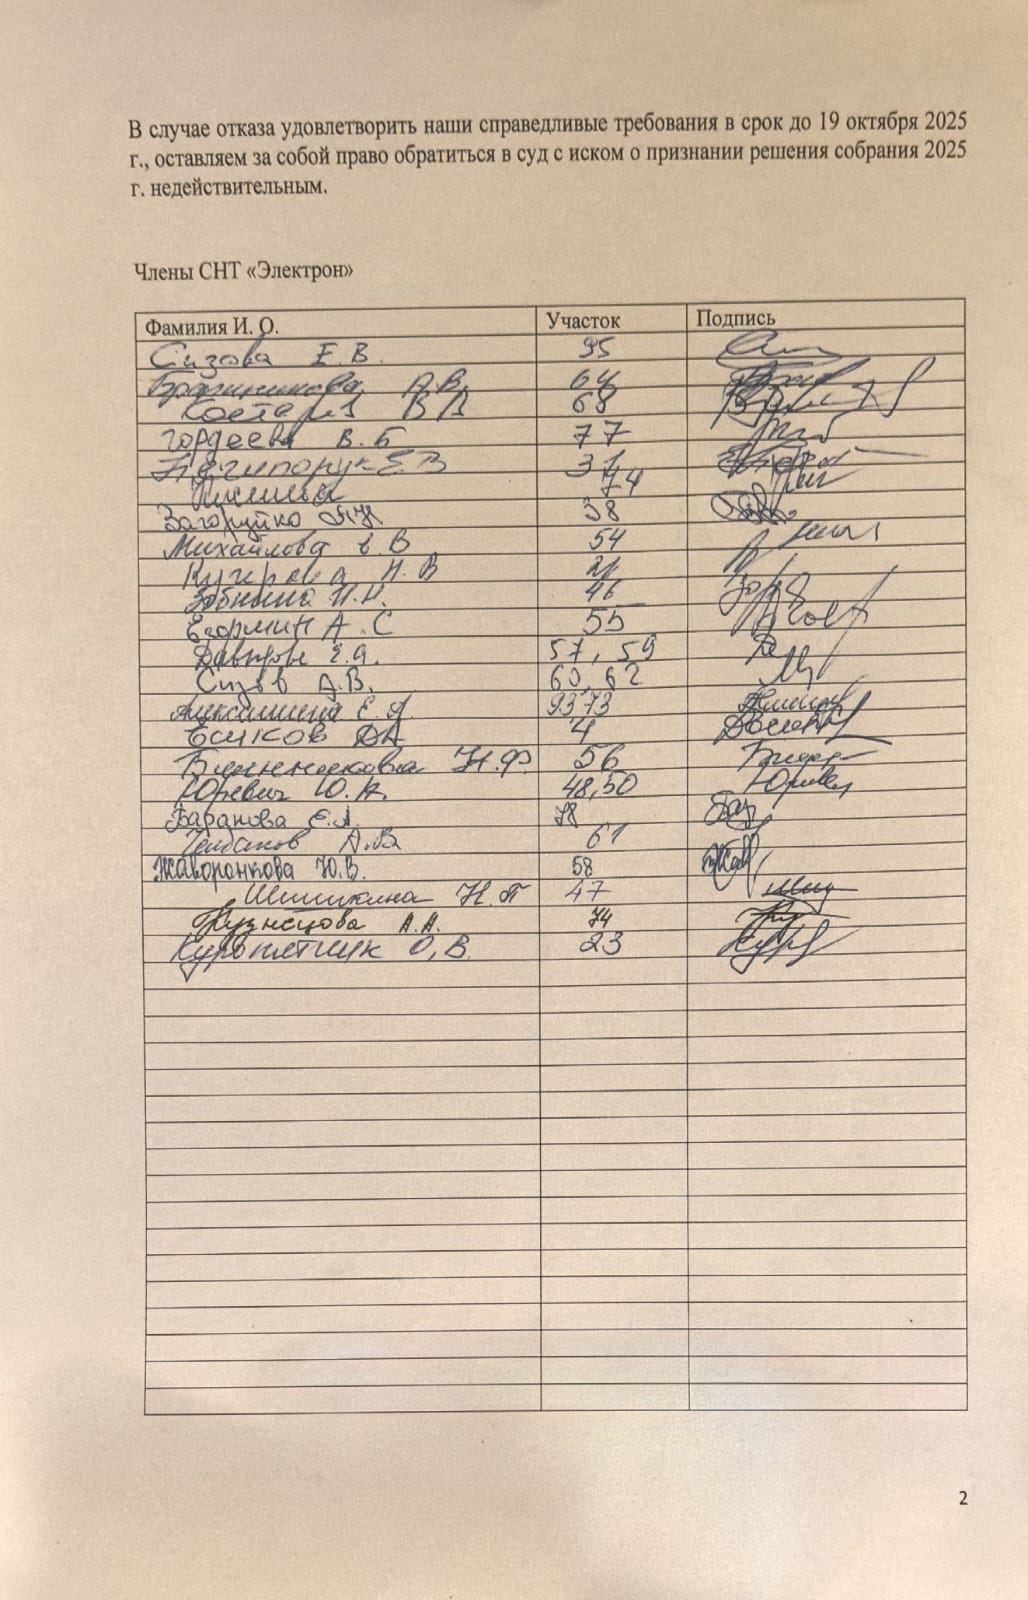 В случае отказа удовлетворить наши справедливые требования в срок до 19 октября 2025
г., оставляем за собой право обратиться в суд с иском о признании решения собрания 2025
г. недействительным.
Члены СНТ «Электрон»
Фамилия И. О. Участок Подпись
Сизова Е. В. 95
А.В. 64
Костарев В А 68
Гордеева В. Б 77
Нечипорук Е В
74
Загоруйко 38
Михайлова В 54
Кучерова Н. В 21
Зобнина Н.Н. 46
Егормин А. С 55
Е.А. 57, 59
Сизов А.В. 60, 62
Алексашина Е. А. 93 73
Есиков ДА 4
Н.Ф. 56
Юревич Ю. А. 48,50
Баранова Е.А. 78
А.В 61
Жаворонкова Ю.В. 58
Шишкина Н.П 47
Кузнецова А.А. 74
Куропятник О, В. 23
2